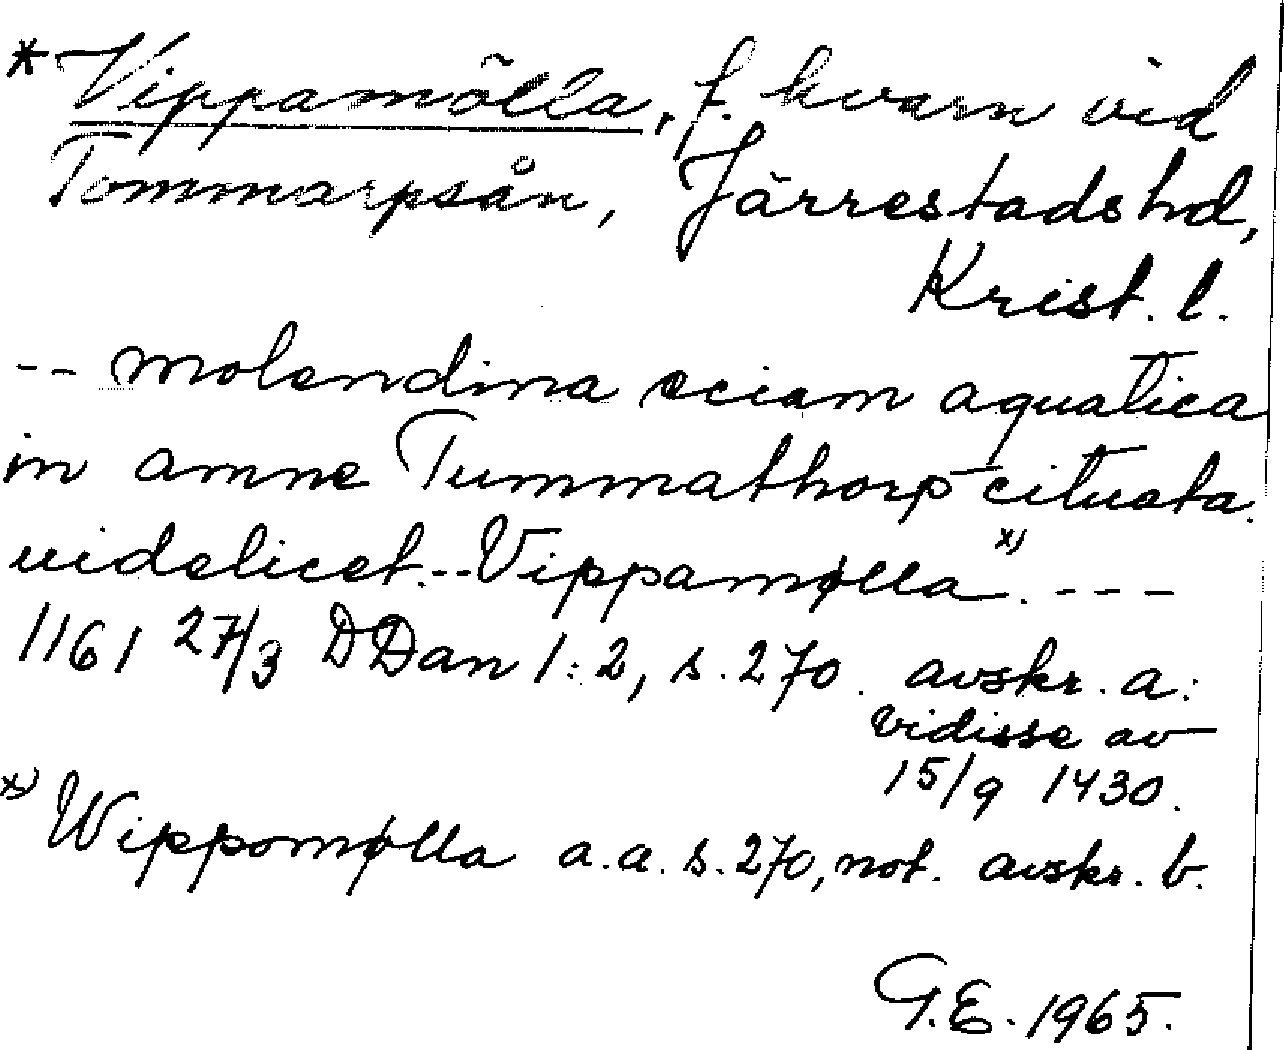 * Vippamölla, f. kvarn vid
Tommarpsån, Järrestads hd,
Krist. l.
-- molendina eciam aquatica
in amne Tummathorp citusta
uidelicet.--Vippamølla x). ---
1161 27/3 DDan 1:2, s. 270. avskr. a:
vidisse av
15/9 1430.
x) Wippomølla a.a. s. 270, not. avskr. b.
G.E. 1965.